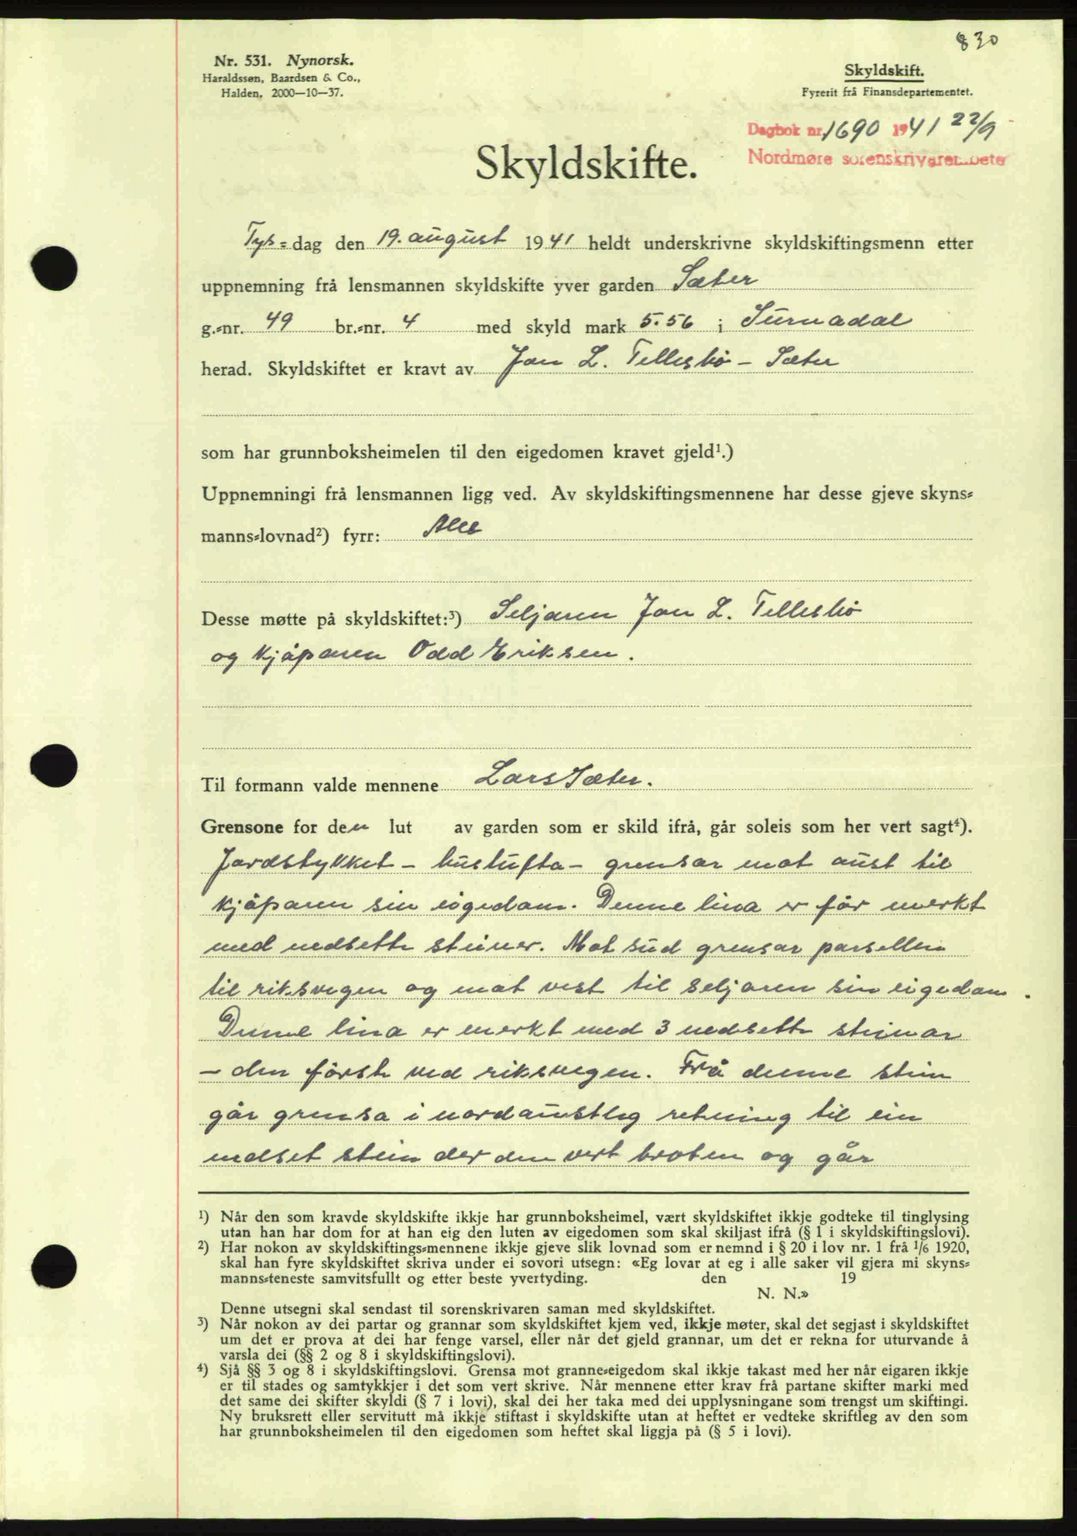 830
Nr. 531. Nynorsk.
Haraldssøn, Baardsen & Co.,
Halden. 2000—10—37.
Skyldskift.
Fyrerit frå Finansdepartementet.
Dagbok nr. 1690 1941 22/9
Nordmøre sorenskrivarembete
Skyldskifte.
Tys-dag den 19. august 1941 heldt underskrivne skyldskiftingsmenn etter
uppnemning frå lensmannen skyldskifte yver garden Sæter
g.-nr. 49 br.-nr. 4 med skyld mark 5.56 i Surnadal
herad. Skyldskiftet er kravt av Jon L. Tellesbø - Sæter
som har grunnboksheimelen til den eigedomen kravet gjeld¹.)
Uppnemningi frå lensmannen ligg ved. Av skyldskiftingsmennene har desse gjeve skyns-
manns-lovnad²) fyrr: Alle
Desse møtte på skyldskiftet:³) Seljaren Jon L. Tellesbø
og kjøparen Odd Eriksen.
Til formann valde mennene Lars Sæter.
Grensone for den lut av garden som er skild ifrå, går soleis som her vert sagt⁴).
Jordstykket - hustufta - grensar mot aust til
kjøparen sin eigedom. Denne lina er før merkt
med nedsette steiner. Mot sud grensar parsellen
til riksvegen og mot vest til seljaren sin eigedom.
Denne lina er merkt med 3 nedsette steinar
- den første ved riksvegen. Frå denne stein
går grensa i nordaustleg retning til ein
nedset stein der den vert broten og går
¹) Når den som kravde skyldskifte ikkje har grunnboksheimel, vært skyldskiftet ikkje godteke til tinglysing
utan han har dom for at han eig den luten av eigedomen som skal skiljast ifrå (§ 1 i skyldskiftingslovi).
²) Har nokon av skyldskiftings-mennene ikkje gjeve slik lovnad som er nemnd i § 20 i lov nr. 1 frå 1/6 1920,
skal han fyre skyldskiftet skriva under ei sovori utsegn: «Eg lovar at eg i alle saker vil gjera mi skyns-
manns-teneste samvitsfullt og etter beste yvertyding. den 19
N. N.»
Denne utsegni skal sendast til sorenskrivaren saman med skyldskiftet.
³) Når nokon av dei partar og grannar som skyldskiftet kjem ved, ikkje møter, skal det segjast i skyldskiftet
um det er prova at dei har fenge varsel, eller når det gjeld grannar, um det er rekna for uturvande å
varsla dei (§§ 2 og 8 i skyldskiftingslovi).
⁴) Sjå §§ 3 og 8 i skyldskiftingslovi. Grensa mot granne-eigedom skal ikkje takast med her når eigaren ikkje
er til stades og samtykkjer i det som vert skrive. Når mennene etter krav frå partane skifter marki med
det same dei skifter skyldi (§ 7 i lovi), skal dei her taka med dei upplysningane som trengst um skiftingi.
Ny bruksrett eller servitutt må ikkje stiftast i skyldskifte utan at heftet er vedteke skriftleg av den som
har grunnboksheimelen til den eigedomen som heftet skal liggja på (§ 5 i lovi).